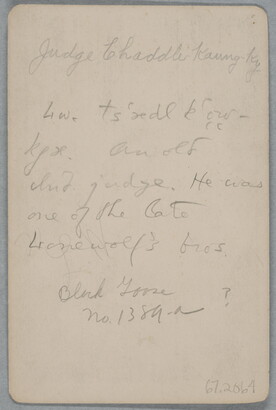 Judge Chaddle Kaung-Ky
An old
Ind judge. He was
one of the late
Lonewolf's bros.
Black Goose ?
No. 1384-a
67.2064